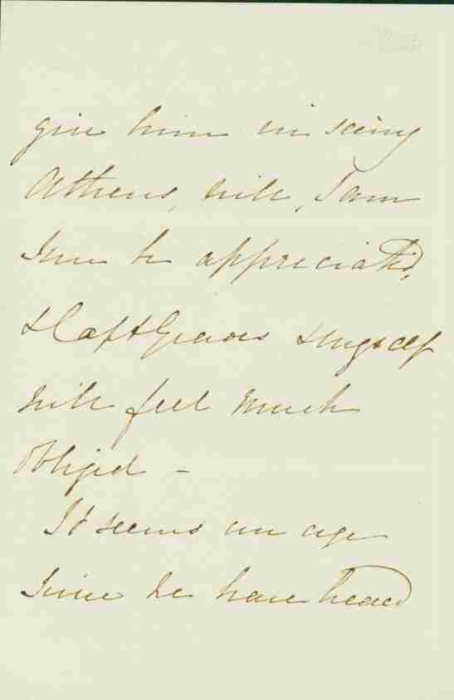 give him in seeing
Athens, will, I am
sure be appreciated,
& Capt Graves & myself
will feel much
obliged -
It seems an age
since we have heard